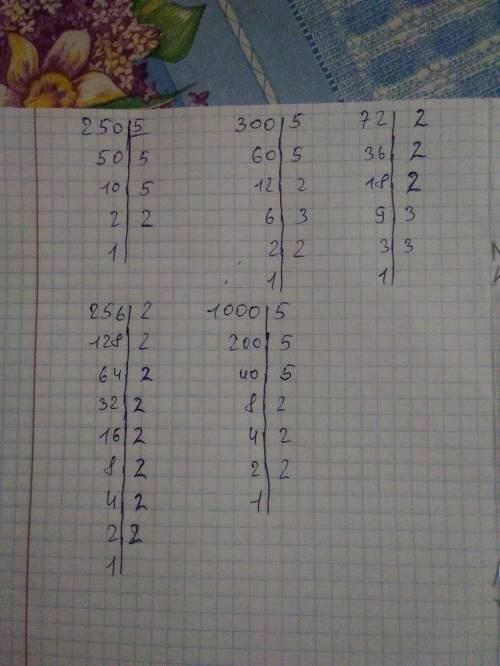 250|5
50|5
10|5
2|2
1|
300|5
60|5
12|2
6|3
2|2
1|
72|2
36|2
18|2
9|3
3|3
1|
256|2
128|2
64|2
32|2
16|2
8|2
4|2
2|2
1|
1000|5
200|5
40|5
8|2
4|2
2|2
1|